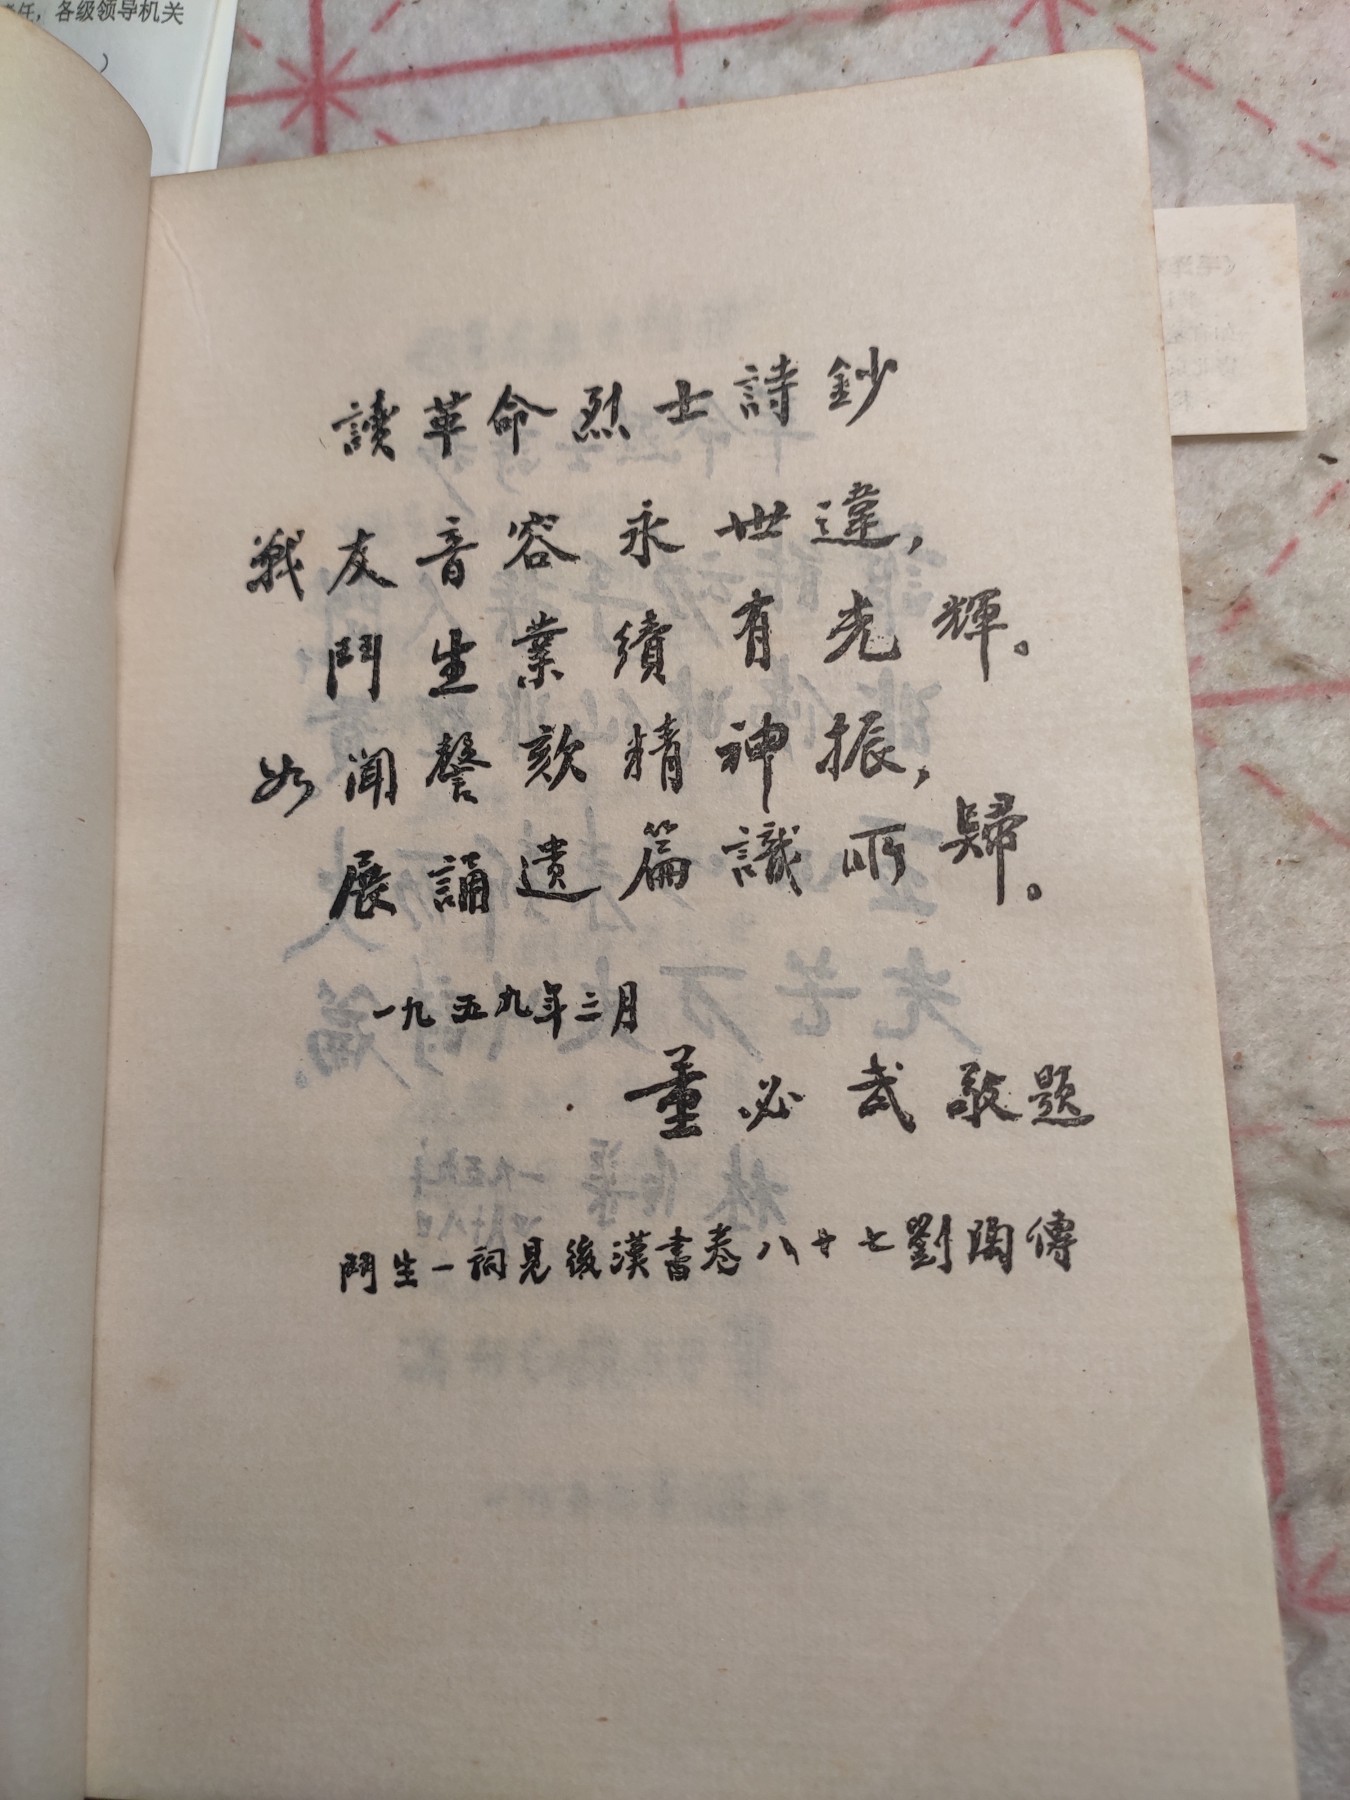 责任，各级领导机关
讀革命烈士詩鈔
戰友音容永世違，
鬥生業績有光輝。
如聞謦欬精神振，
展誦遺篇識所歸。
一九五九年三月
董必武敬題
鬥生一詞見後漢書卷八十七劉陶傳